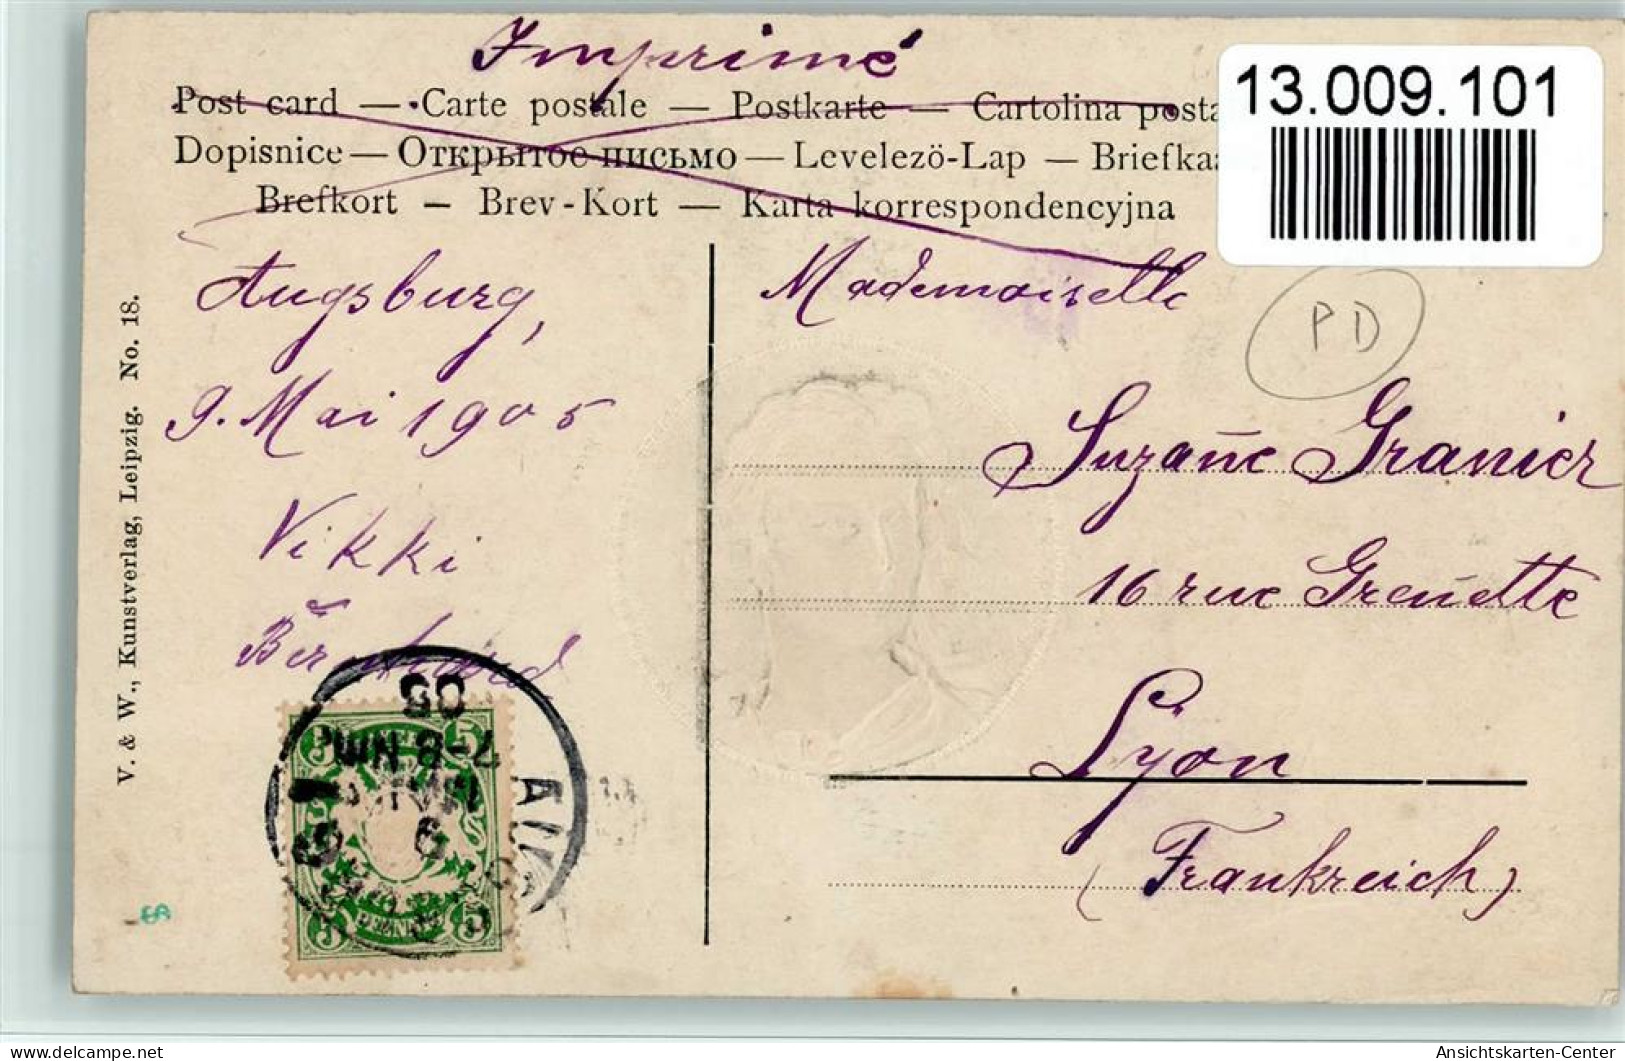 Imprimé
Post card — Carte postale — Postkarte — Cartolina posta
Dopisnice — Открытое письмо — Levelezö-Lap — Briefkaa
Brefkort — Brev-Kort — Karta korrespondencyjna
13.009.101
PD
Augsburg,
9. Mai 1905
Vikki
Mademoiselle
Suzan̄e Granier
16 rue Gren̄ette
Lyon
(Frankreich)
V. & W., Kunstverlag, Leipzig. No. 18.
05
7-8 NM.
MAI
9
5 5
5 5
PFENNIG
Ansichtskarten-Center